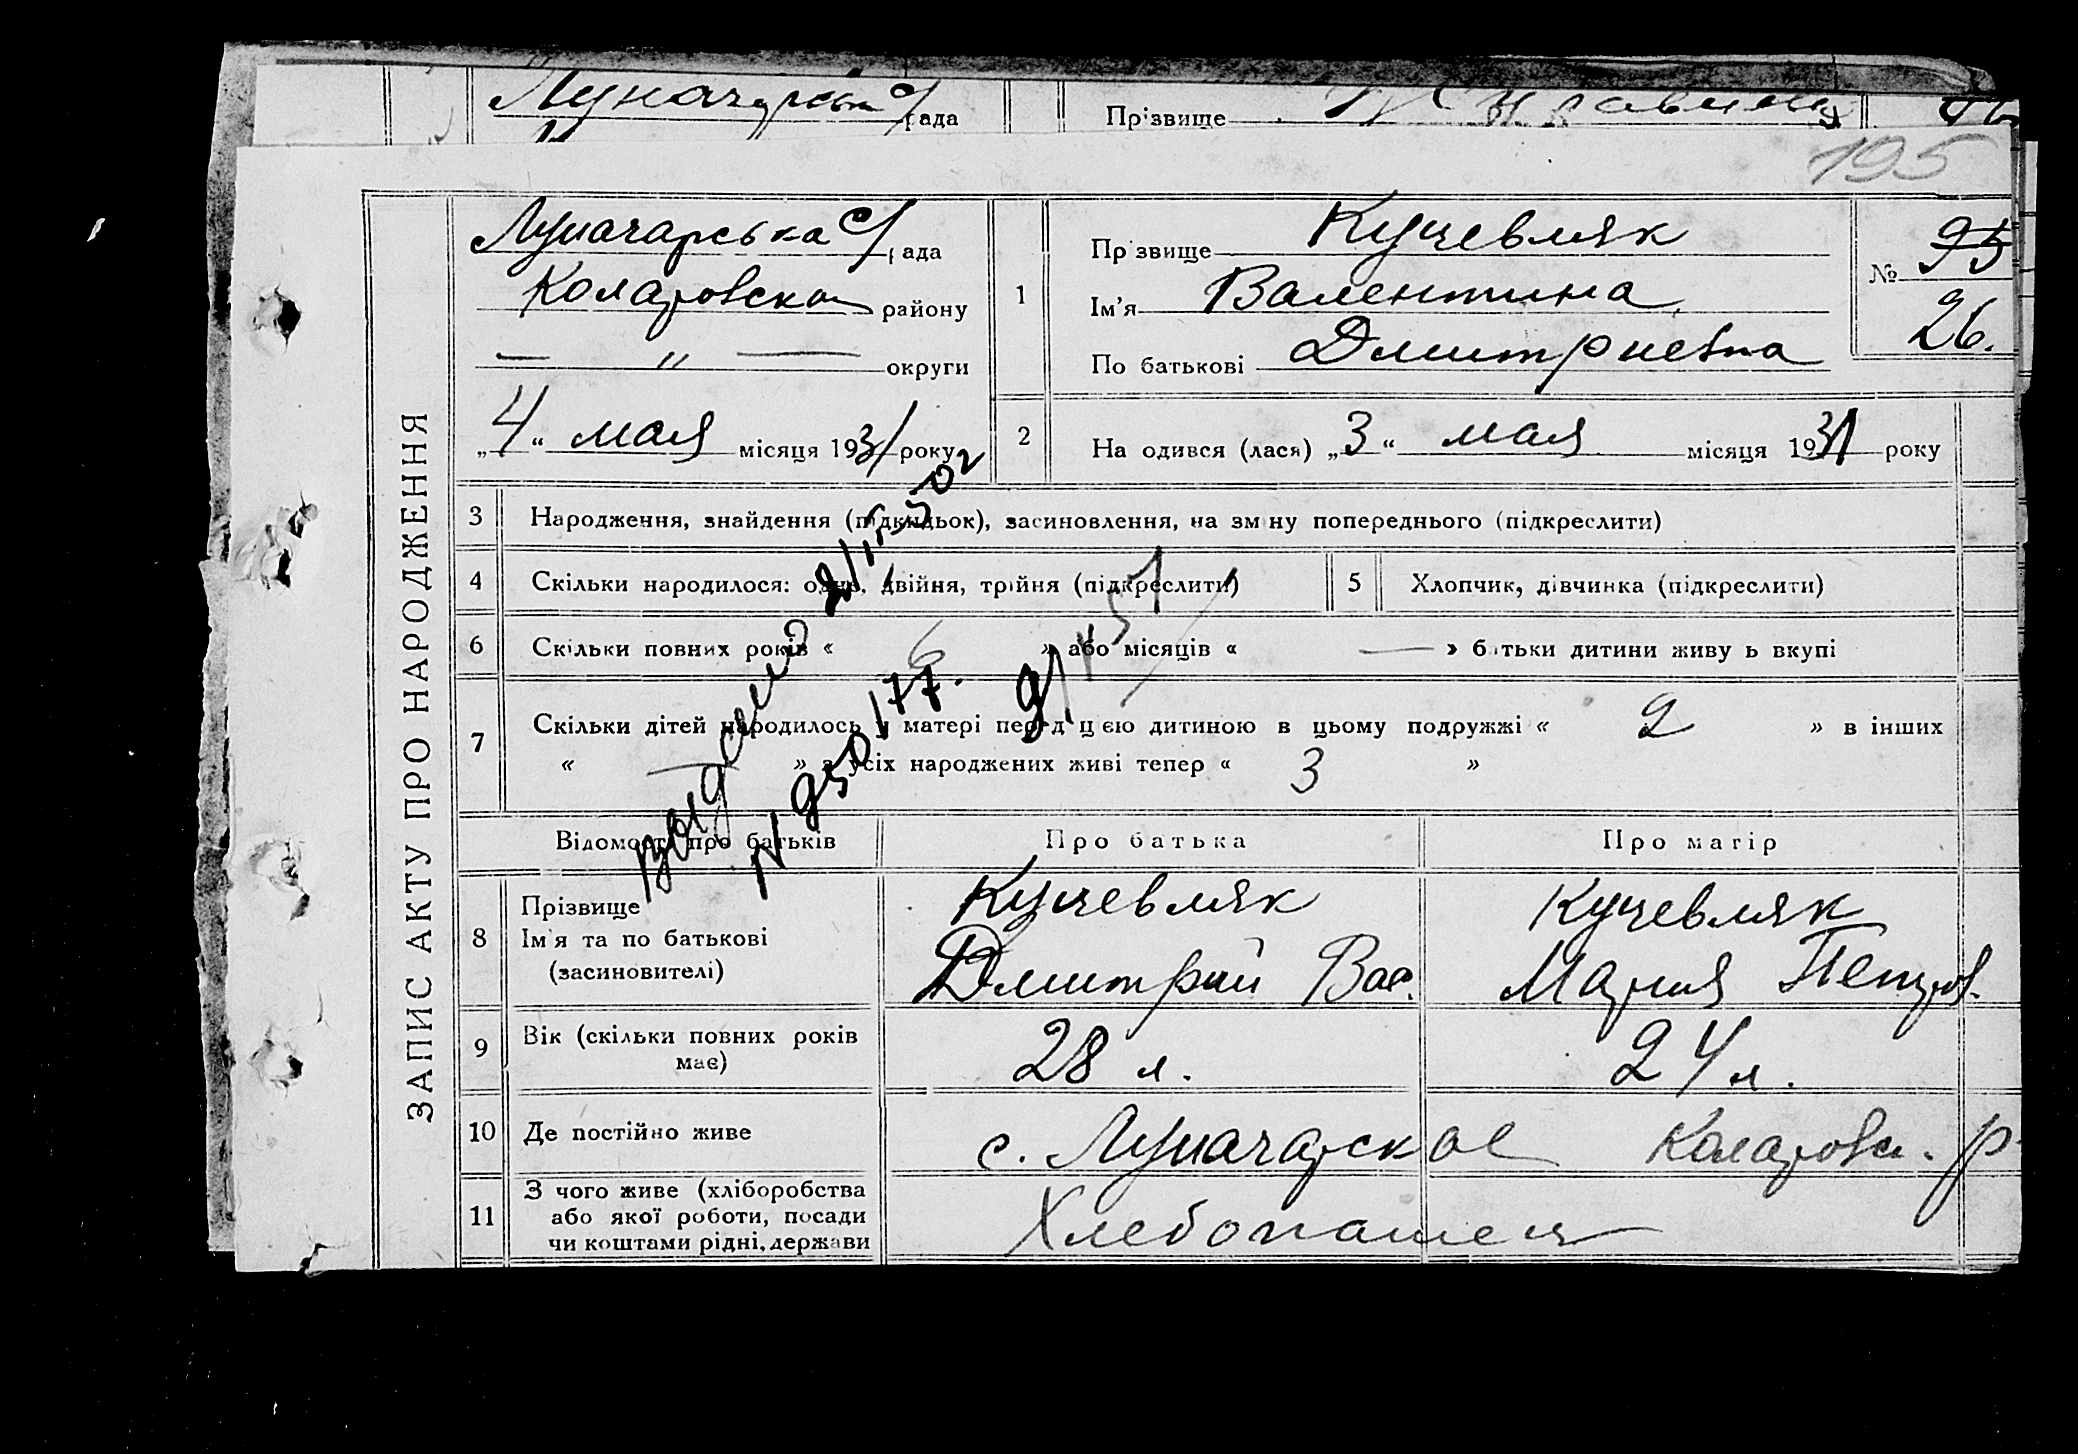 Луначарська с/рада
Прізвище
195
ЗАПИС АКТУ ПРО НАРОДЖЕННЯ
Луначарська с/рада
Коларовско району
— " — округи
„4“ мая місяця 1931 року
1
Прізвище Кучевляк
Ім’я Валентина
По батькові Дмитриевна
№ 95
26.
2
На одився (лася) „3“ мая місяця 1931 року
3 Народження, знайдення (підкидьок), засиновлення, на зміну попереднього (підкреслити)
4 Скільки народилося: одно, двійня, трійня (підкреслити)
5 Хлопчик, дівчинка (підкреслити)
6 Скільки повних років « 6 » або місяців « — » батьки дитини живу ь вкупі
7 Скільки дітей народилось у матері перед цією дитиною в цьому подружжі « 2 » в інших
« — » з усіх народжених живі тепер « 3 »
N 950177.
Відомості про батьків
Про батька
Про матір
8 Прізвище
Ім’я та по батькові
(засиновителі)
Кучевляк
Дмитрий Вас.
Кучевляк
Мария Петров.
9 Вік (скільки повних років
має)
28 л.
24 л.
10 Де постійно живе
с. Луначарское Коларовск. р
11 З чого живе (хліборобства
або якої роботи, посади
чи коштами рідні, держави
Хлебопашея